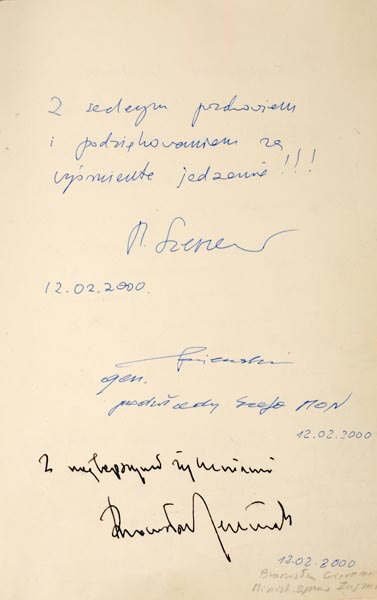 Z serdecznym pozdrowieniem
i podziękowaniem za
wyśmienite jedzenie!!!
12.02.2000.
gen.
MON
12.02.2000
Z najlepszymi życzeniami
Bronisław Geremek
12.02.2000
Bronisław Geremek
Minist. Spraw Zagran